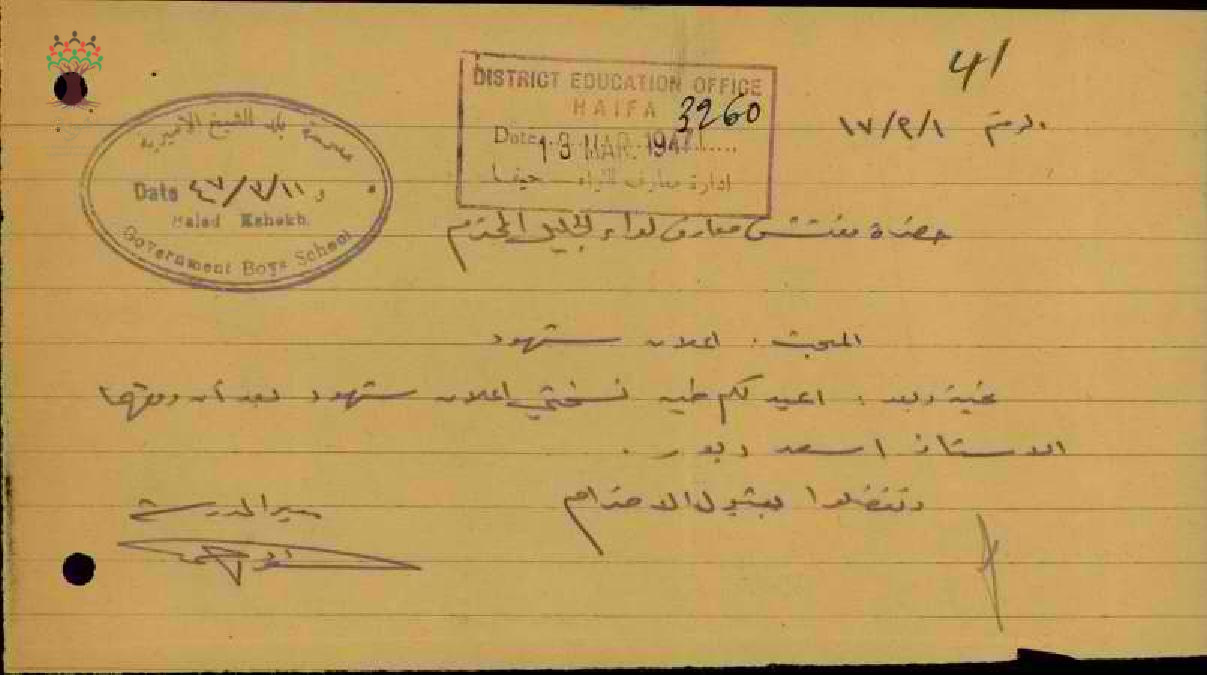 41
الرقم ١٧/٩/١
DISTRICT EDUCATION OFFICE
HAIFA
3260
Date 13 MAR. 1947
ادارة معارف اللواء حيفا
مدرسة بلد الشيخ الاميرية
Date ٤٧/٣/١١
Balad Eshekh.
Government Boys School
حضرة مفتش معارف لواء الجليل المحترم
المبحث : اعلان ستهود
تحية وبعد : اعيد لكم طيه نسختي اعلان ستهود بعد أن وقعها
الاستاذ اسعد دبور .
وتفضلوا بقبول الاحترام
مدير المدرسة